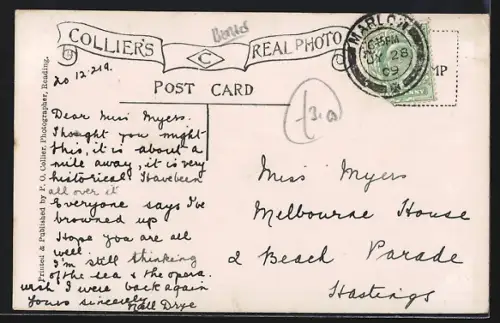 Bucks
COLLIER'S C REAL PHOTO
POST CARD
MARLOW
28
09
MP
20.12.219.
£3.00
Printed & Published by P. O. Collier, Photographer, Reading.
Dear Miss Myers.
Thought you might
this, it is about a
mile away, it is very
historical I have been
all over it
Everyone says I've
browned up
Hope you are all
well.
I'm still thinking
of the sea & the opera.
wish I were back again
Yours sincerely
Nell Drye
Miss Myers
Melbourne House
2 Beach Parade
Hastings